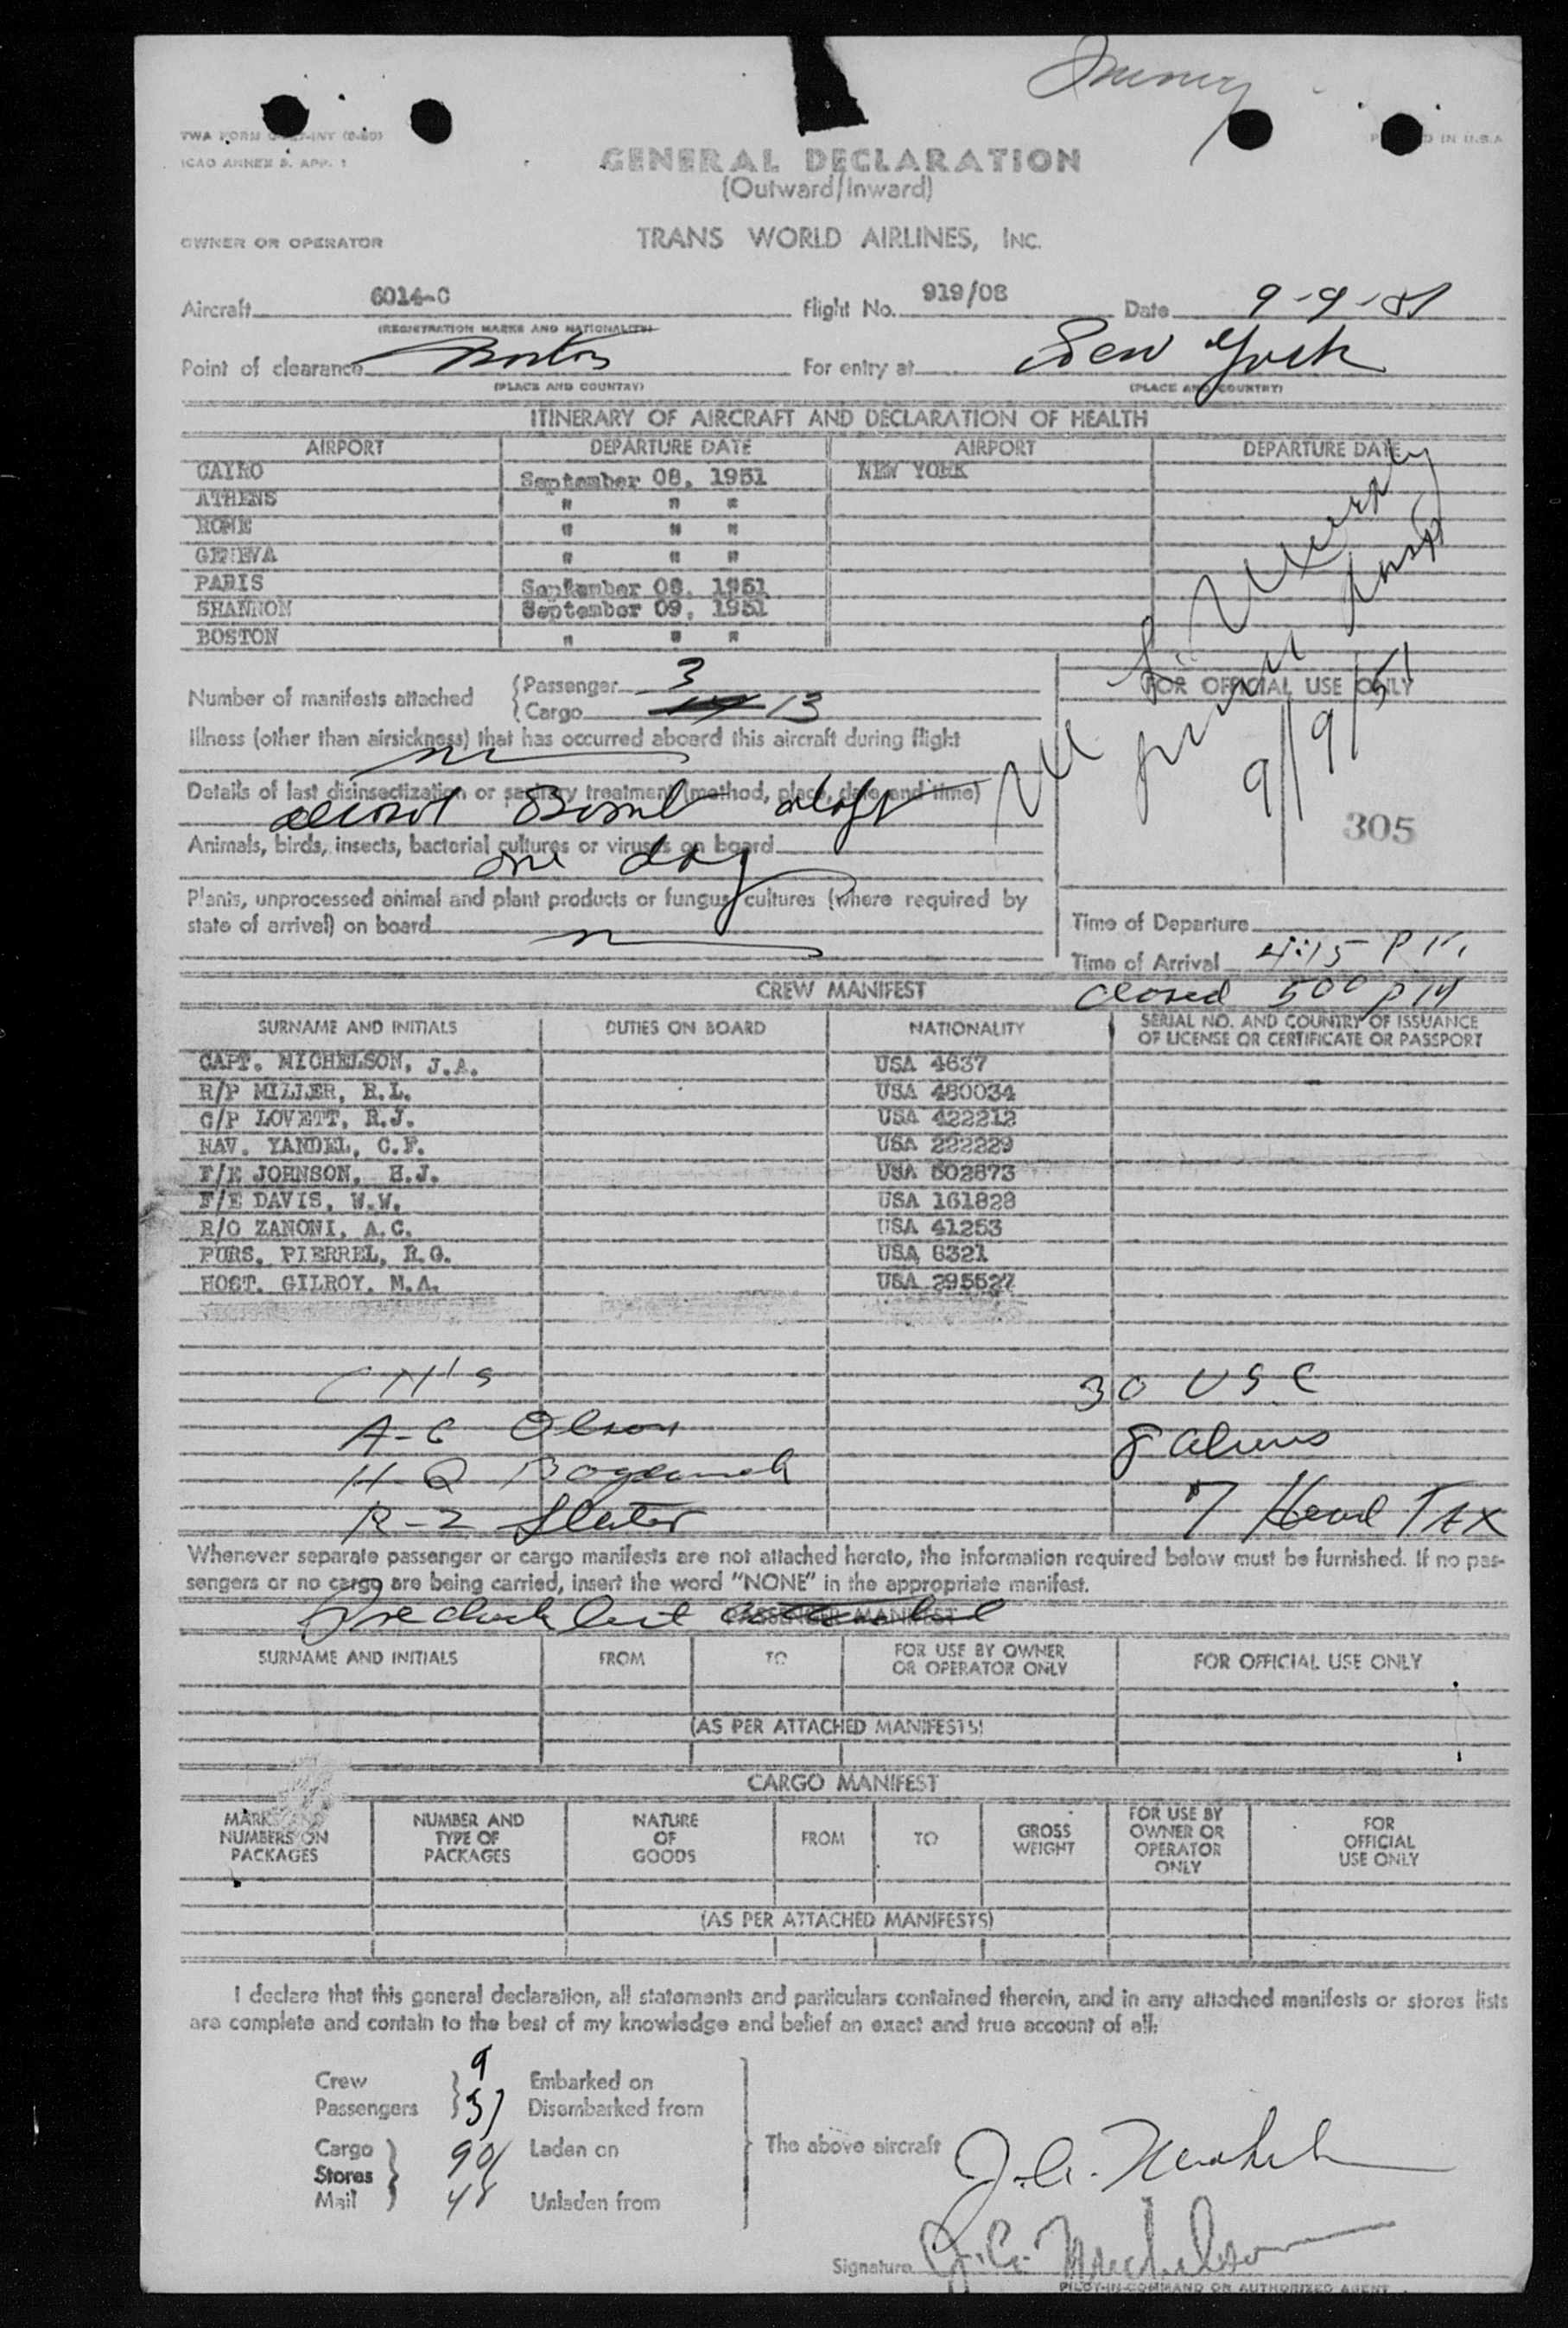 TWA FORM
ICAO ANNEX 9. APP. 1
IN U.S.A.
GENERAL DECLARATION
(Outward/Inward)
OWNER OR OPERATOR
TRANS WORLD AIRLINES, INC.
Aircraft 6014-C Flight No. 919/08 Date 9-9-51
(REGISTRATION MARKS AND NATIONALITY)
Point of clearance Boston For entry at New York
(PLACE AND COUNTRY) (PLACE AND COUNTRY)
ITINERARY OF AIRCRAFT AND DECLARATION OF HEALTH
AIRPORT DEPARTURE DATE AIRPORT DEPARTURE DATE
CAIRO September 08, 1951 NEW YORK
ATHENS " " "
ROME " " "
GENEVA " " "
PARIS September 08, 1951
SHANNON September 09, 1951
BOSTON " " "
Number of manifests attached
Passenger 3
Cargo 13
FOR OFFICIAL USE ONLY
9/9/51
305
Illness (other than airsickness) that has occurred aboard this aircraft during flight
Details of last disinsectization or sanitary treatment (method, place, date and time)
aerosol Bomb aloft
Animals, birds, insects, bacterial cultures or viruses on board
one dog
Plants, unprocessed animal and plant products or fungus cultures (where required by
state of arrival) on board
Time of Departure
Time of Arrival 4:15 PM
closed 500 PM
CREW MANIFEST
SURNAME AND INITIALS DUTIES ON BOARD NATIONALITY SERIAL NO. AND COUNTRY OF ISSUANCE
OF LICENSE OR CERTIFICATE OR PASSPORT
CAPT. MICHELSON, J.A. USA 4637
R/P MILLER, R.L. USA 480034
C/P LOVETT, R.J. USA 422212
NAV. YANDEL, C.F. USA 222229
F/E JOHNSON, H.J. USA 502873
F/E DAVIS, W.W. USA 161828
R/O ZANONI, A.C. USA 41253
PURS. PIERREL, R.G. USA 6321
HOST. GILROY, M.A. USA 295527
30 USC
A-6 Olson
8 aliens
H-Q
R-2 Slater
7 Head TAX
Whenever separate passenger or cargo manifests are not attached hereto, the information required below must be furnished. If no pas-
sengers or no cargo are being carried, insert the word "NONE" in the appropriate manifest.
Precheck list attached
PASSENGER MANIFEST
SURNAME AND INITIALS FROM TO FOR USE BY OWNER
OR OPERATOR ONLY
FOR OFFICIAL USE ONLY
(AS PER ATTACHED MANIFESTS)
CARGO MANIFEST
MARKS AND
NUMBERS ON
PACKAGES
NUMBER AND
TYPE OF
PACKAGES
NATURE
OF
GOODS
FROM
TO
GROSS
WEIGHT
FOR USE BY
OWNER OR
OPERATOR
ONLY
FOR
OFFICIAL
USE ONLY
(AS PER ATTACHED MANIFESTS)
I declare that this general declaration, all statements and particulars contained therein, and in any attached manifests or stores lists
are complete and contain to the best of my knowledge and belief an exact and true account of all:
Crew 9 Embarked on
Passengers Disembarked from
Cargo Laden on
Stores
Mail 48 Unladen from
The above aircraft
Signature J. A. Michelson
PILOT-IN-COMMAND OR AUTHORIZED AGENT